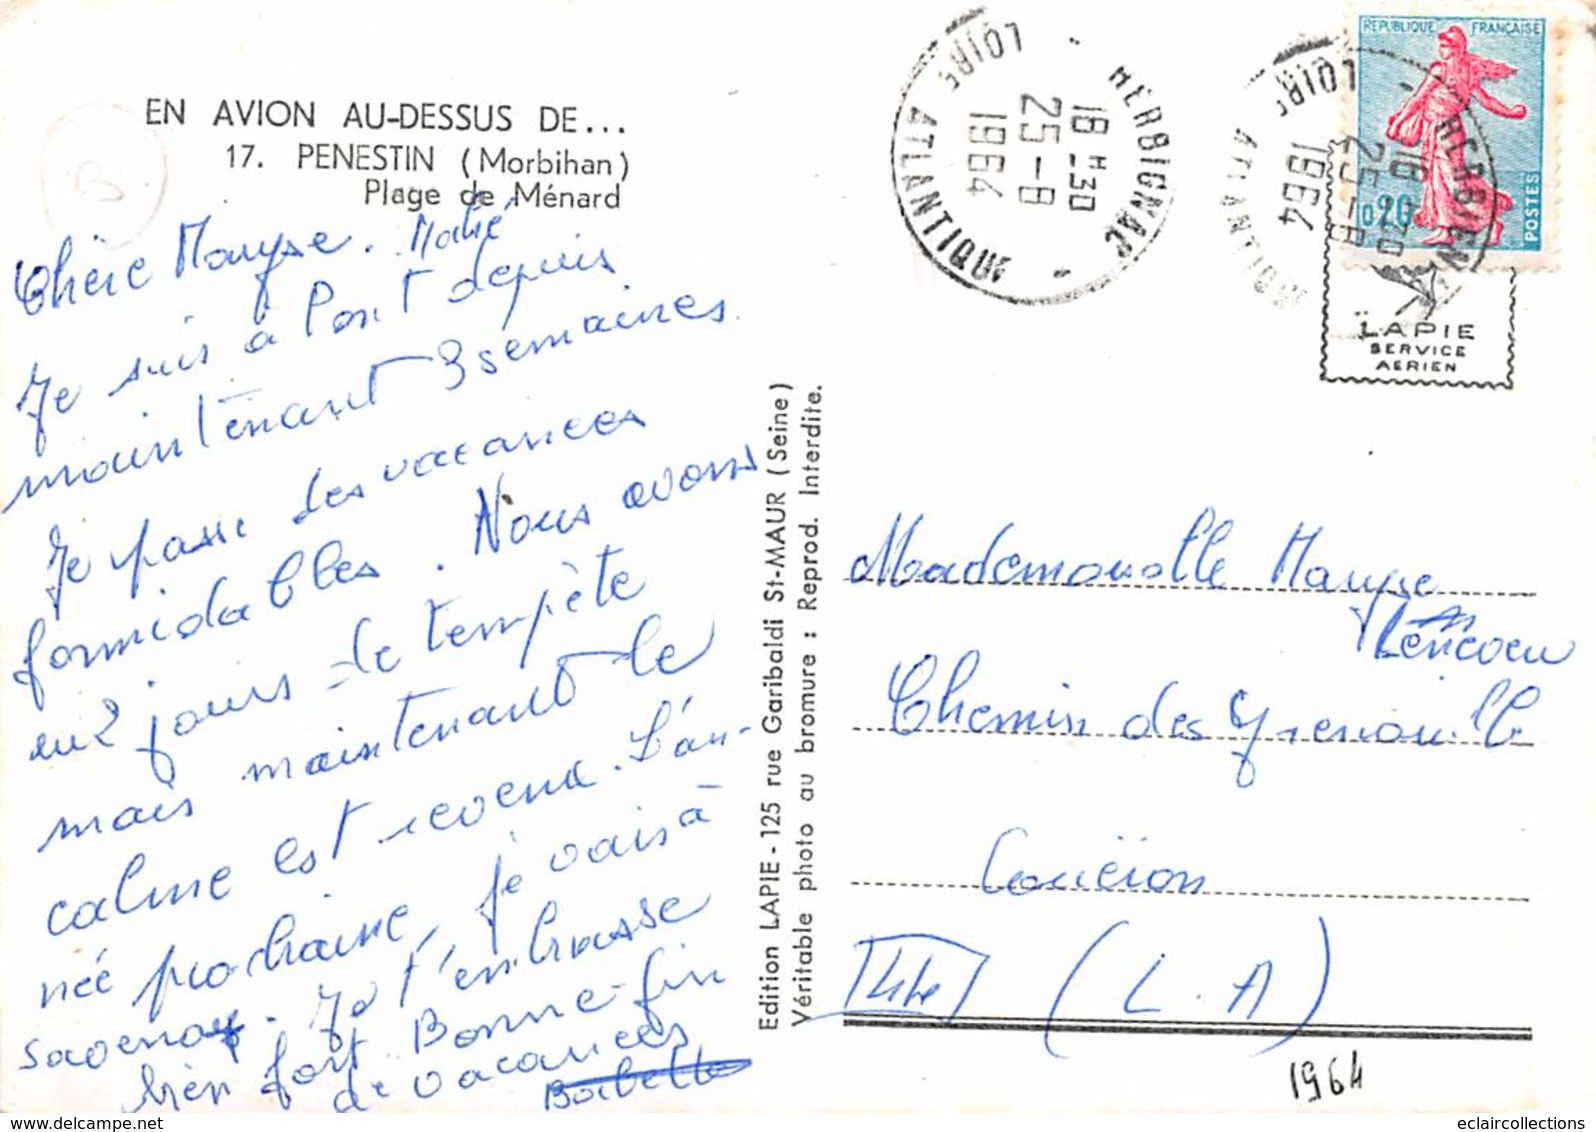 EN AVION AU-DESSUS DE...
17. PENESTIN (Morbihan)
Plage de Ménard
Chère Maryse.
Je suis à Pont depuis
maintenant 3 semaines.
Je passe des vacances
formidables. Nous avons
eu 2 jours de tempête
mais maintenant le
calme est revenu. L'an-
née prochaine, je vais à
savenay. Je t'embrasse
bien fort Bonne fin
de vacances
Babette
Edition LAPIE - 125 rue Garibaldi St-MAUR (Seine)
Véritable photo au bromure : Reprod. Interdite.
HERBIGNAC
18 H 30
25-8
1964
LOIRE ATLANTIQUE
HERBIGNAC
25-8
1964
LOIRE ATLANTIQUE
REPUBLIQUE FRANÇAISE
0,20
POSTES
LAPIE
SERVICE
AERIEN
Mademoiselle Maryse
Chemin des Grenouille
Couëron
(L. A)
1964
B
eclaircollections